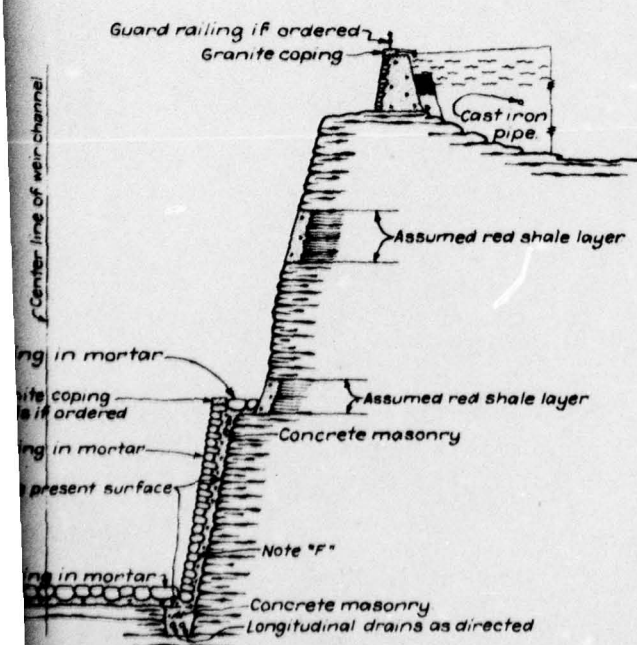 Guard railing if ordered
Granite coping
Cast iron
pipe.
Center line of weir channel
Assumed red shale layer
ing in mortar
ite coping
if ordered
Assumed red shale layer
Concrete masonry
ing in mortar
present surface
Note "F"
ing in mortar
Concrete masonry
Longitudinal drains as directed